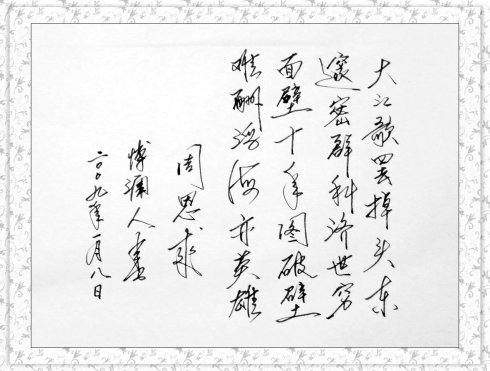 大江歌罢掉头东
邃密群科济世穷
面壁十年图破壁
难酬蹈海亦英雄
周恩来
澜人书
二〇〇九年一月八日